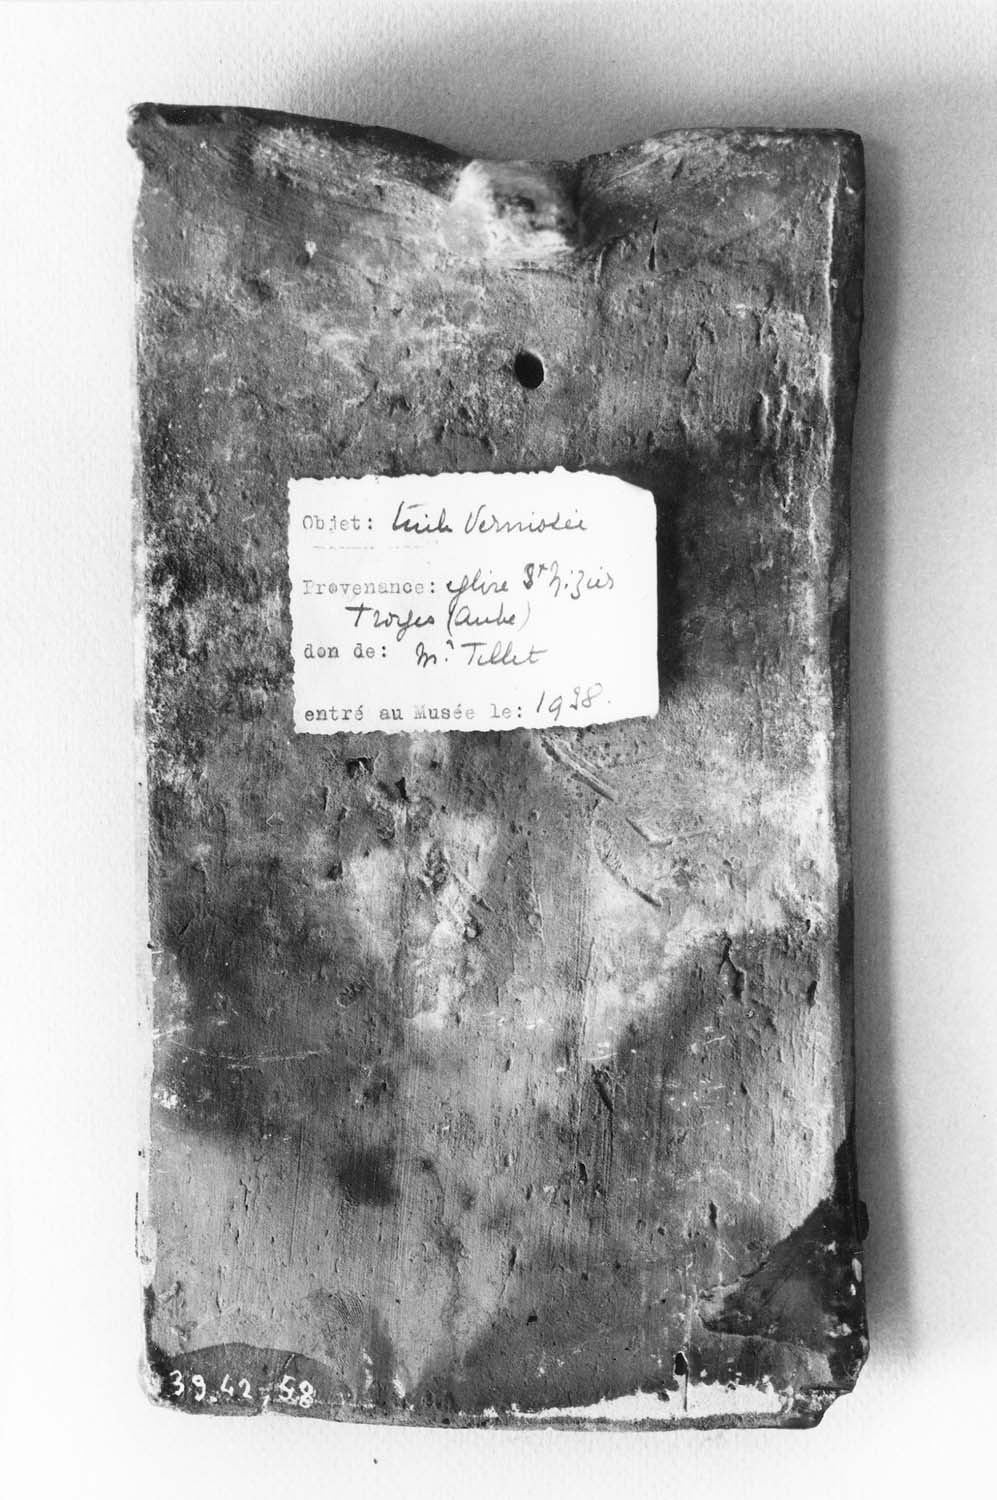 Objet: tuile Vernissée
Provenance: église St Nizier
Troyes (Aube)
don de: Mr Tillet
entré au Musée le: 1938.
39.42-58